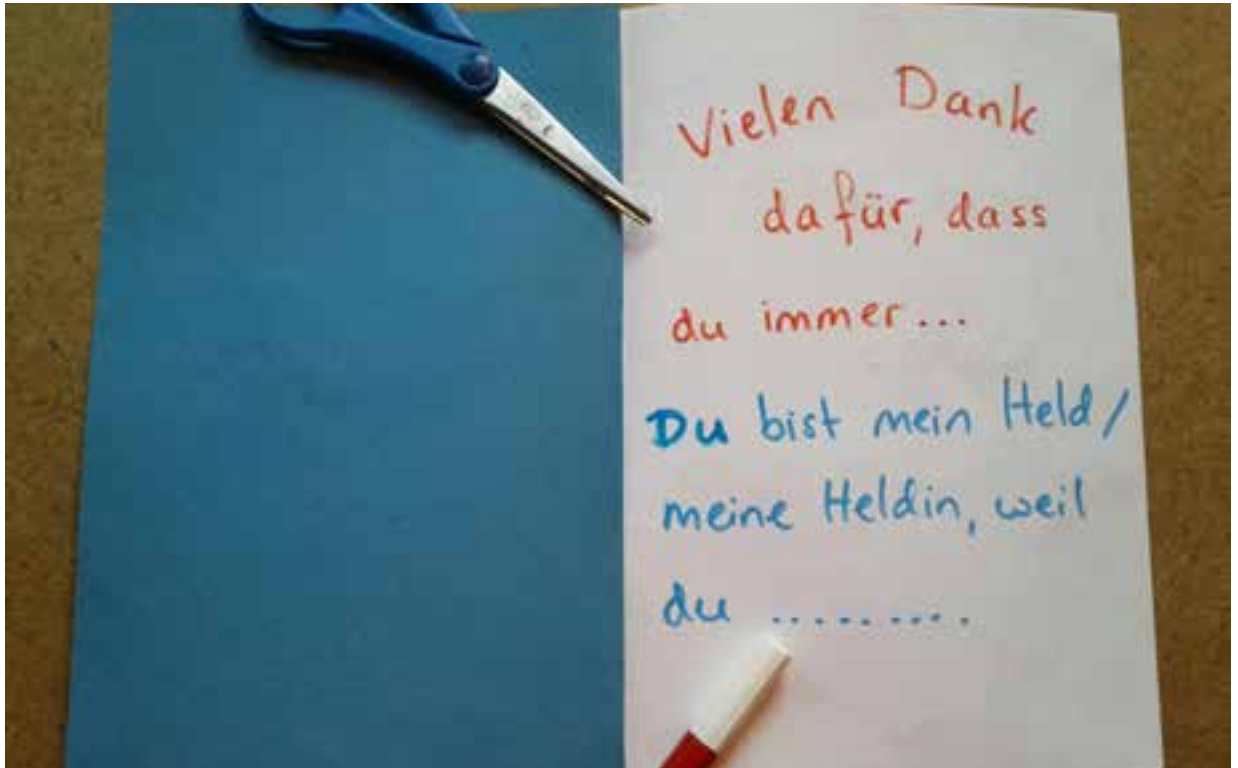 Vielen Dank
dafür, dass
du immer...
Du bist mein Held/
meine Heldin, weil
du .........